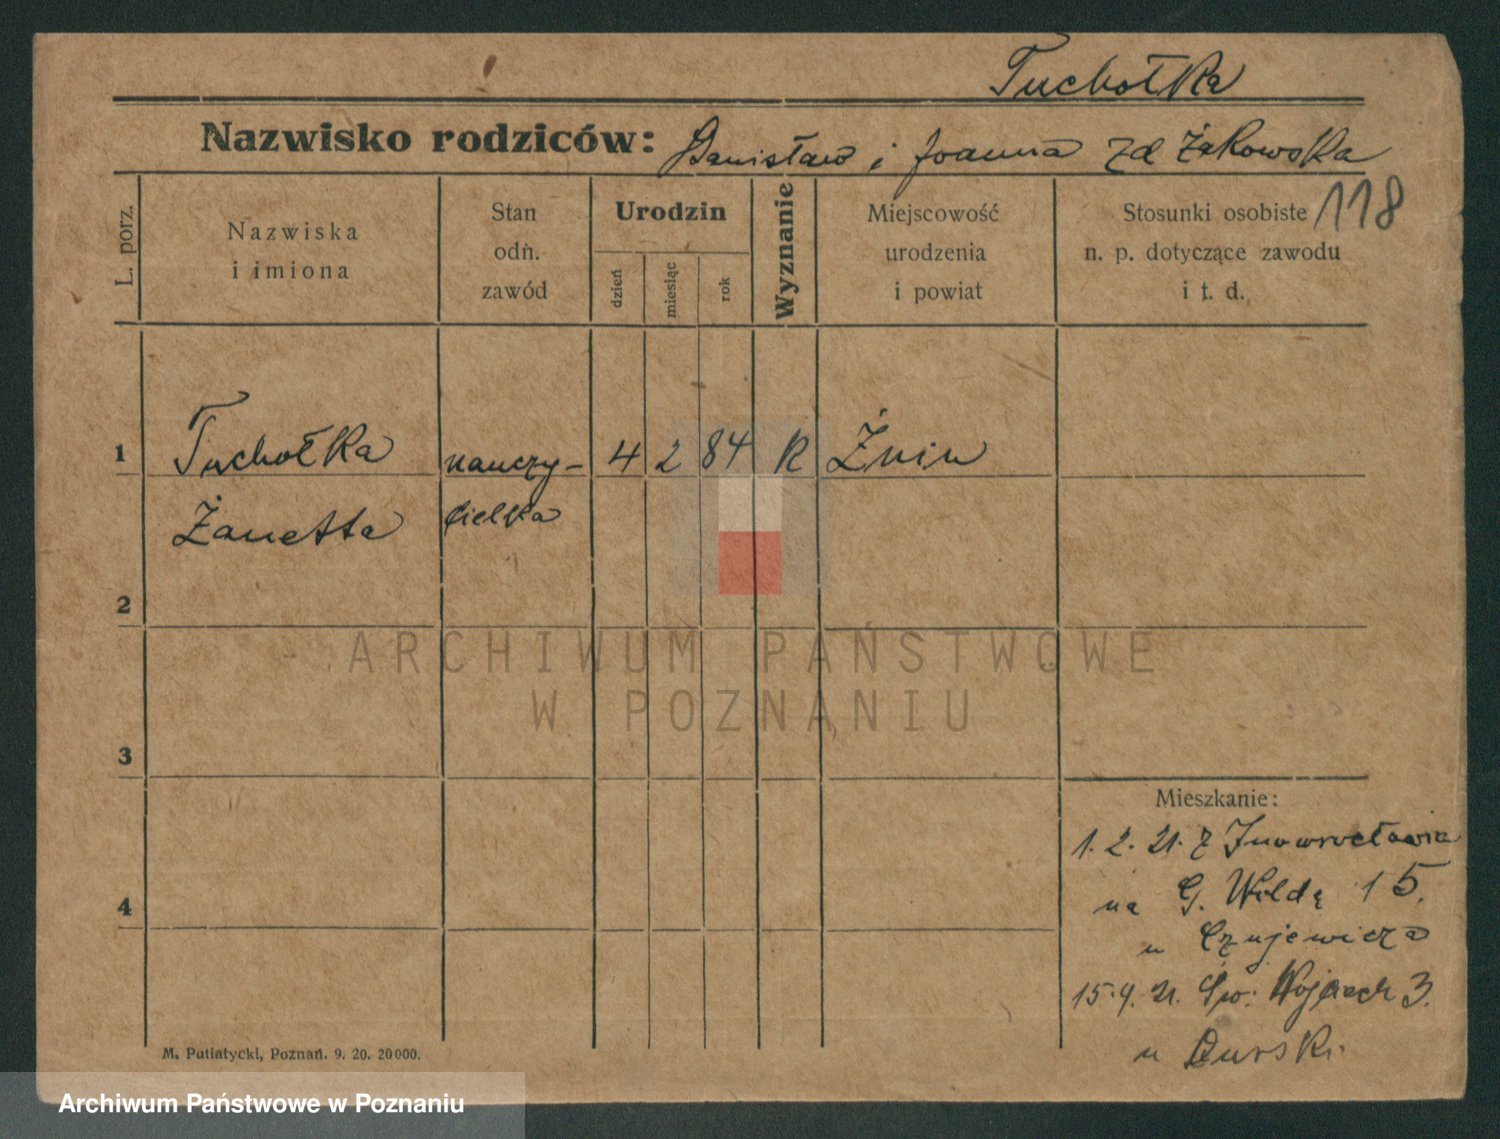 Tuchołka
Nazwisko rodziców: Stanisław i Joanna zd Żakowska
118
L. porz.
Nazwiska
i imiona
Stan
odn.
zawód
Urodzin
dzień
miesiąc
rok
Wyznanie
Miejscowość
urodzenia
i powiat
Stosunki osobiste
n. p. dotyczące zawodu
i t. d.
1 Tuchołka nauczy- 4 2 84 R Żnin
Żanetta cielka
2
ARCHIWUM PAŃSTWOWE
W POZNANIU
3
Mieszkanie:
1. 2. 21. z Inowrocławia
na G. Wildę 15.
4
u Czujewicza
15. 4. 21. Św. Wojciech 3.
u Burski
M. Putiatycki, Poznań. 9. 20. 20000.
Archiwum Państwowe w Poznaniu